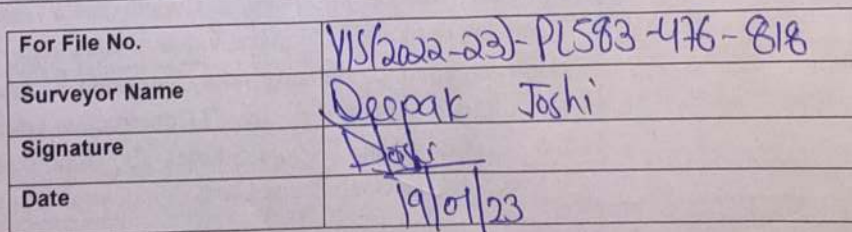 For File No. VIS(2022-23)-PL583-476-818
Surveyor Name Deepak Joshi
Signature Joshi
Date 19/01/23